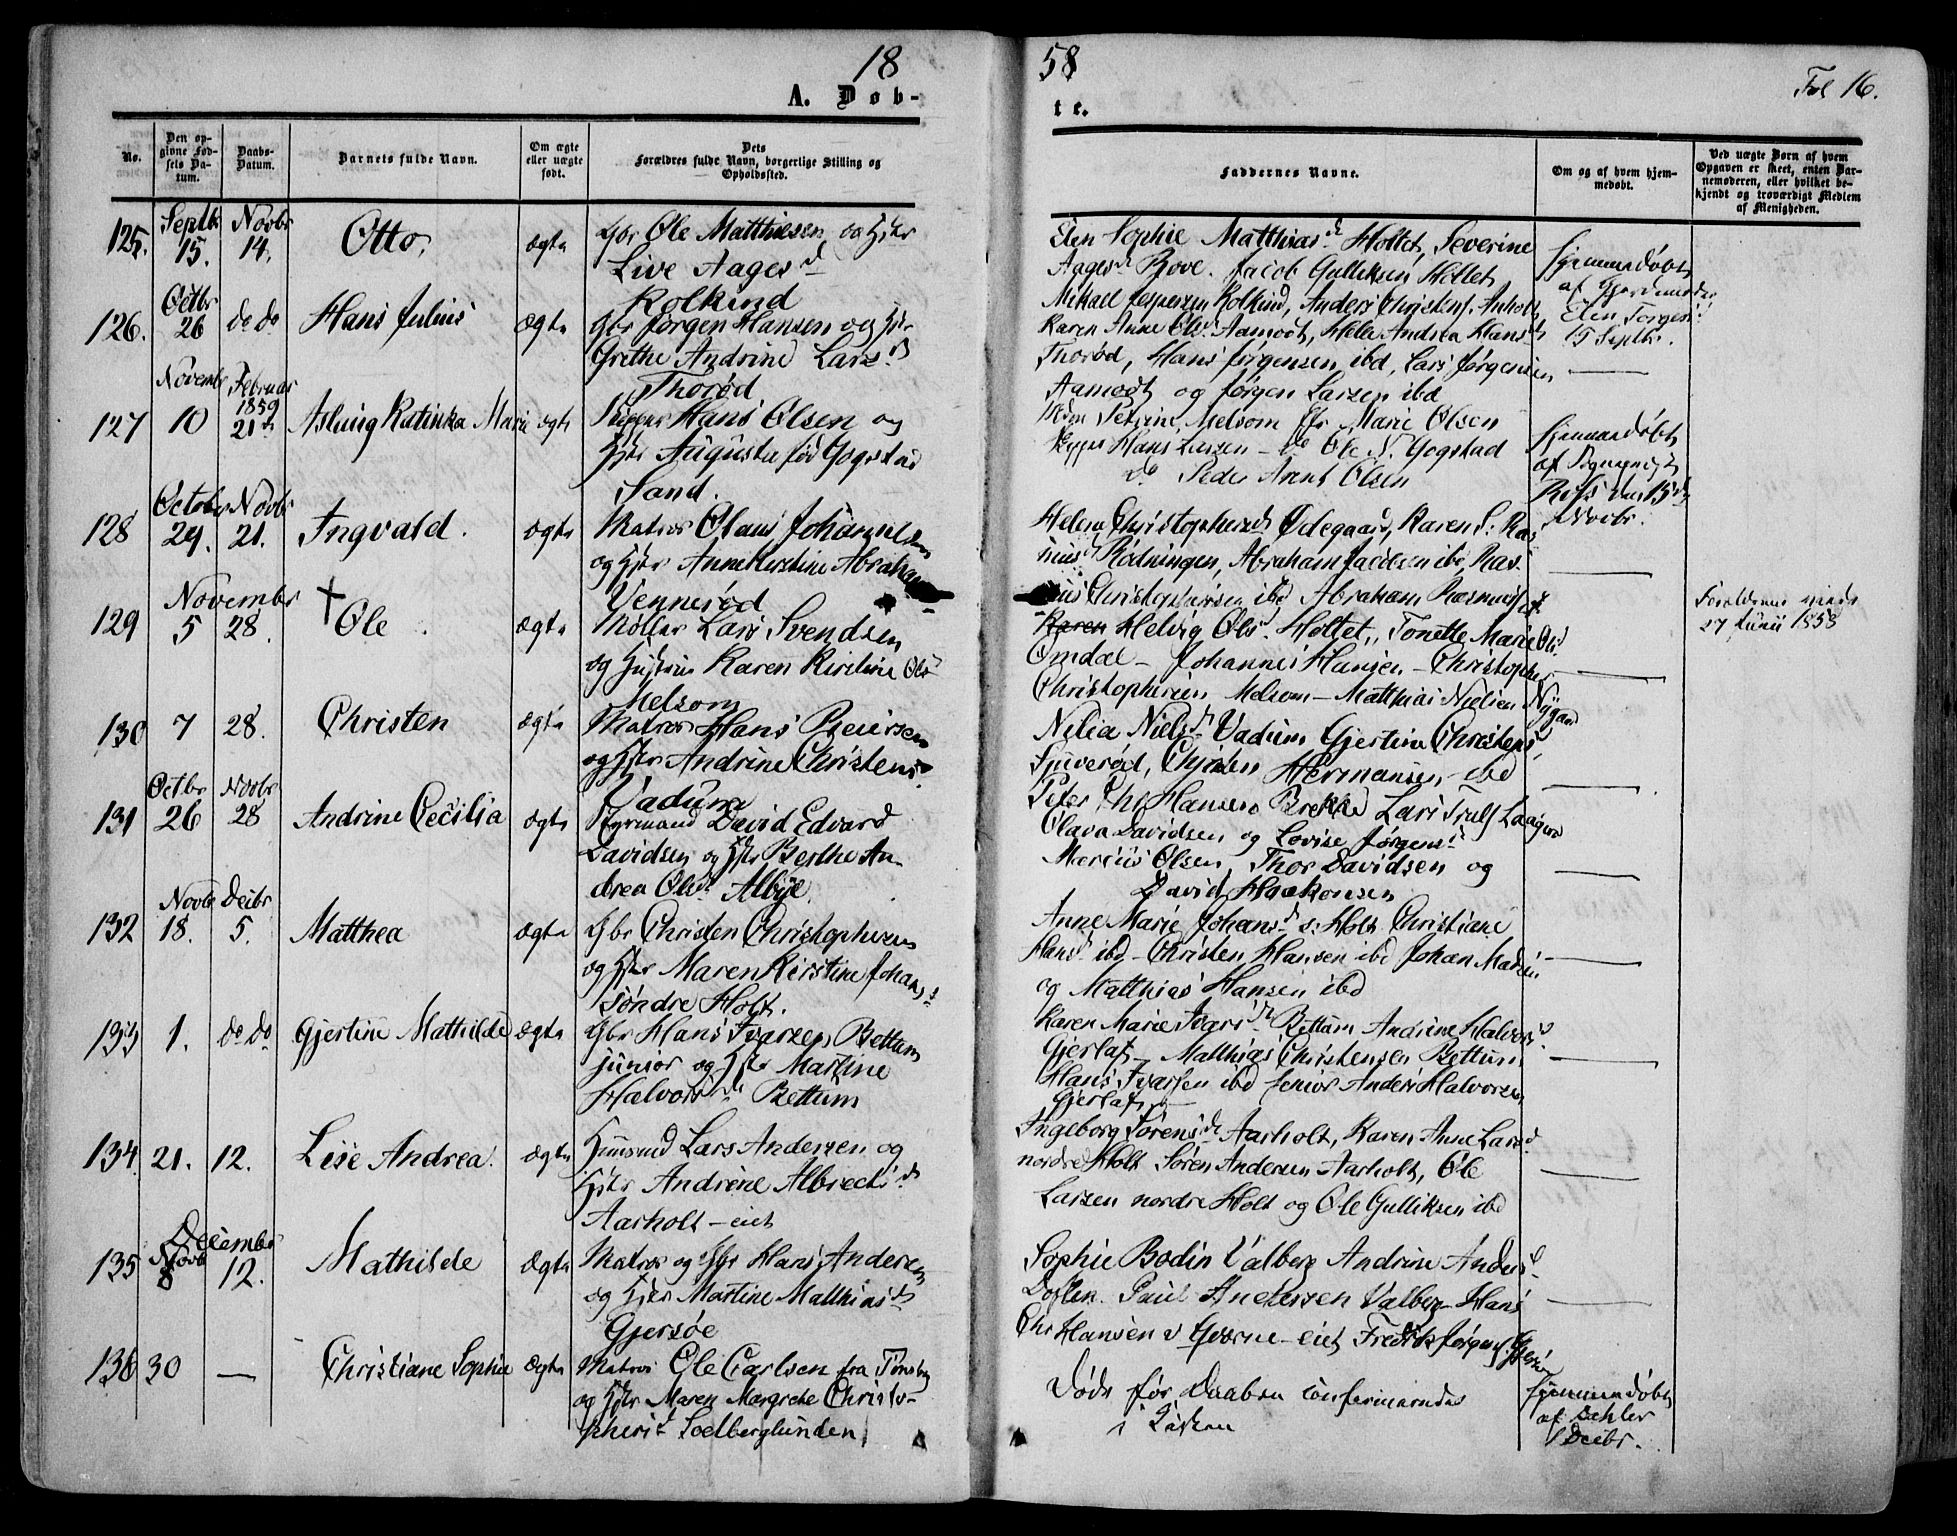 18
58
Fol 16.
A. Døb-
te.
No.
Den op-
givne Fød-
sels Da-
tum.
Daabs-
Datum.
Barnets fulde Navn.
Om ægte
eller uægte
født.
Dets
Forældres fulde Navn, borgerlige Stilling og
Opholdssted.
Faddernes Navne.
Om og af hvem hjem-
medøbt.
Ved uægte Børn af hvem
Opgaven er skeet, enten Bar-
nemoderen, eller hvilket be-
kjendt og troværdigt Medlem
af Menigheden.
125. Septbr 15. Novbr 14. Otto. ægte
Gbr Ole Matthiesen og Hstr
Live Aagesd
Rolkind
Elen Sophie Matthiasd Holtet, Severine
Aagesd Bove. Jacob Gulliksen Holtet
Mikael Jespersen Rolkind, Anders Christens. Anholt
Hjemmedøbt
af Gjordemoder
Elen Torgersd
15 Septbr.
126. Octbr 26 do do Hans Julius ægte
Gbr Jørgen Hansen og Hstr
Grethe Andrine Larsd
Thorød
Karen Anne Olsd Aamodt, Helle Andrea Hansd
Thorød, Hans Jørgensen ibd, Lars Jørgensen
Aamodt og Jørgen Larsen ibd
127 Novembr 10 Februar 1859 21de Aslaug Katinka Marie ægte
Skipper Hans Olsen og
Hstr Augusta fød Gogstad
Sand.
Mdm Petrine Melsom Jfr Marie Olsen
Skipper Hans Larsen - do Ole N. Gogstad
do Peder Arnt Olsen
Hjemmedøbt
af Sognepræst
Novbr.
128 October 29. Novbr 21. Ingvald. ægte
Matros Olaus Johannesen
og Hstr Anne Kirstine Abraham
Vennerød
Helene Christophersd Ødegaard, Karen S. Ras
musd Rødningen, Abraham Jacobsen ibd, Ras
mus Christophersen ibd Abraham Rasmus
129 Novembr 5 28. † Ole. ægte
Møller Lars Svendsen
og Hustru Karen Kirstine Olsd
Melsom
Karen Helvig Olsd. Holtet, Tonette Marie Olsd
Omdal - Johannes Hansen - Christopher
Christophersen Melsom - Matthias Nielsen Nygaard
Forældrene viede
27 Junii 1858
130 7 28. Christen ægte
Matros Hans Beiersen
og Hstr Andrine Christensd
Vadum
Nilia Nielsd Vadum Gjertine Christensd
Sjuverød, Christen Hermansen ibd
Peter Chr Hansen Brekke Lars Truls Laagerø
131 Octbr 26 Novbr 28 Andrine Cecilia ægte
Styrmand David Edvard
Davidsen og Hstr Berthe An-
drea Olsd Albye.
Olava Davidsen og Lovise Jørgensd
Marius Olsen Thor Davidsen og
David Haakonsen
132 Novbr 18. Decbr 5. Matthea ægte
Gbr Christen Christophersen
og Hstr Maren Kirstine Johansd
Søndre Holt.
Anne Marie Johansd s: Holt Christiane
Hansd ibd - Christen Hansen ibd Johan
og Matthias Hansen ibd
133 1. do do Gjertine Mathilde ægte
Gbr Hans Ivarsen Bettum
junior og Hstr Martine
Halvorsd Bettum
Karen Marie Ivarsd Bettum Andrine Halvorsd
Gjerlaf - Matthias Christensen Bettum
Hans Ivarsen ibd senior Anders Halvorsen
Gjerlaf
134. 21. 12. Lise Andrea. ægte
Huusmd Lars Andersen og
Hstr Andrine Albrectsd
Aarholt-eiet
Ingeborg Sørensd Aarholt, Karen Anne Larsd
nordre Holt Søren Andersen Aarholt, Ole
Larsen nordre Holt og Ole Gulliksen ibd
135 Novbr 8 December 12. Mathilde ægte
Matros og Gbr Hans Andersen
og Hstr Martine Matthiasd
Gjersøe
Sophie Bodin Valberg Andrine Andersd
Paul Andersen Valberg Hans
Chr Hansen Hværne-eiet Fredrik Jørgens. Gjersøe
136 30 — Christiane Sophie Ægte
Matros Ole Carlsen fra Tønsberg
og Hstr Maren Margrethe Christo-
phersd Solberglunden
Døde før Daabens confirmerende
i Kirken
Hjemmedøbt
af Dahler
1 Decbr.